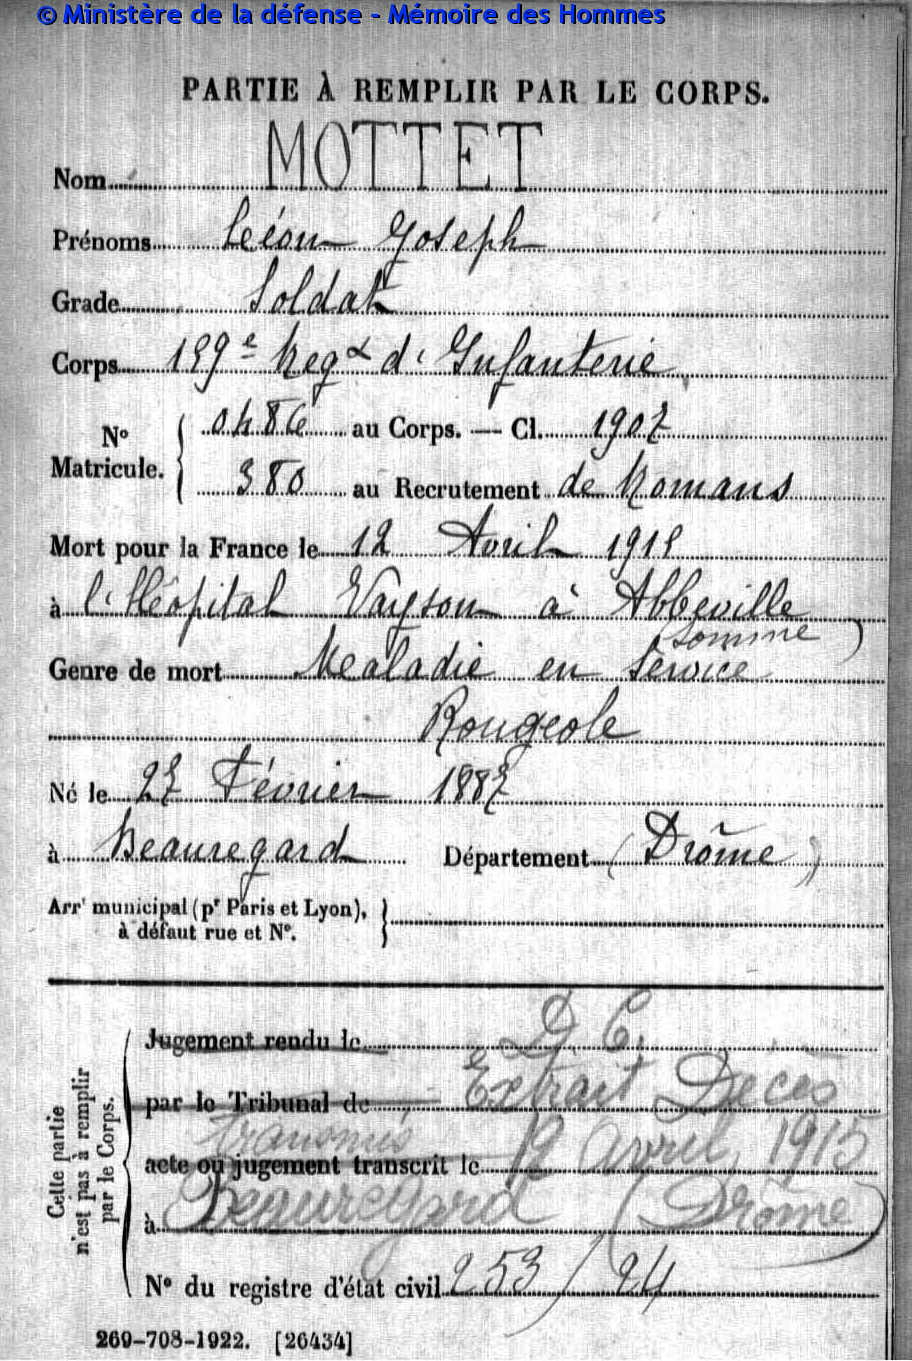 © Ministère de la défense - Mémoire des Hommes
PARTIE À REMPLIR PAR LE CORPS.
Nom MOTTET
Prénoms Léon Joseph
Grade Soldat
Corps 159e Regt d'Infanterie
No Matricule. 0486 au Corps. — Cl. 1907
380 au Recrutement de Romans
Mort pour la France le 12 Avril 1915
à l'Hôpital Vayson à Abbeville
(Somme)
Genre de mort Maladie en Service
Rougeole
Né le 27 Février 1887
à Beauregard Département (Drôme)
Arrt municipal (pr Paris et Lyon),
à défaut rue et No.
Cette partie
n'est pas à remplir
par le Corps.
Jugement rendu le D. C.
par le Tribunal de Extrait Décès
transmis
acte ou jugement transcrit le 19 avril 1915
à Beauregard (Drôme)
No du registre d'état civil 253/24
269-708-1922. [26434]